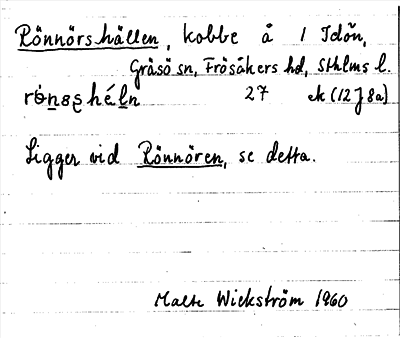 Rönnörshällen, kobbe å 1 Idön,
Gräsö sn, Frösåkers hd, Sthlms l.
27 ek (12J8a)
Ligger vid Rönnören, se detta.
Malte Wickström 1960